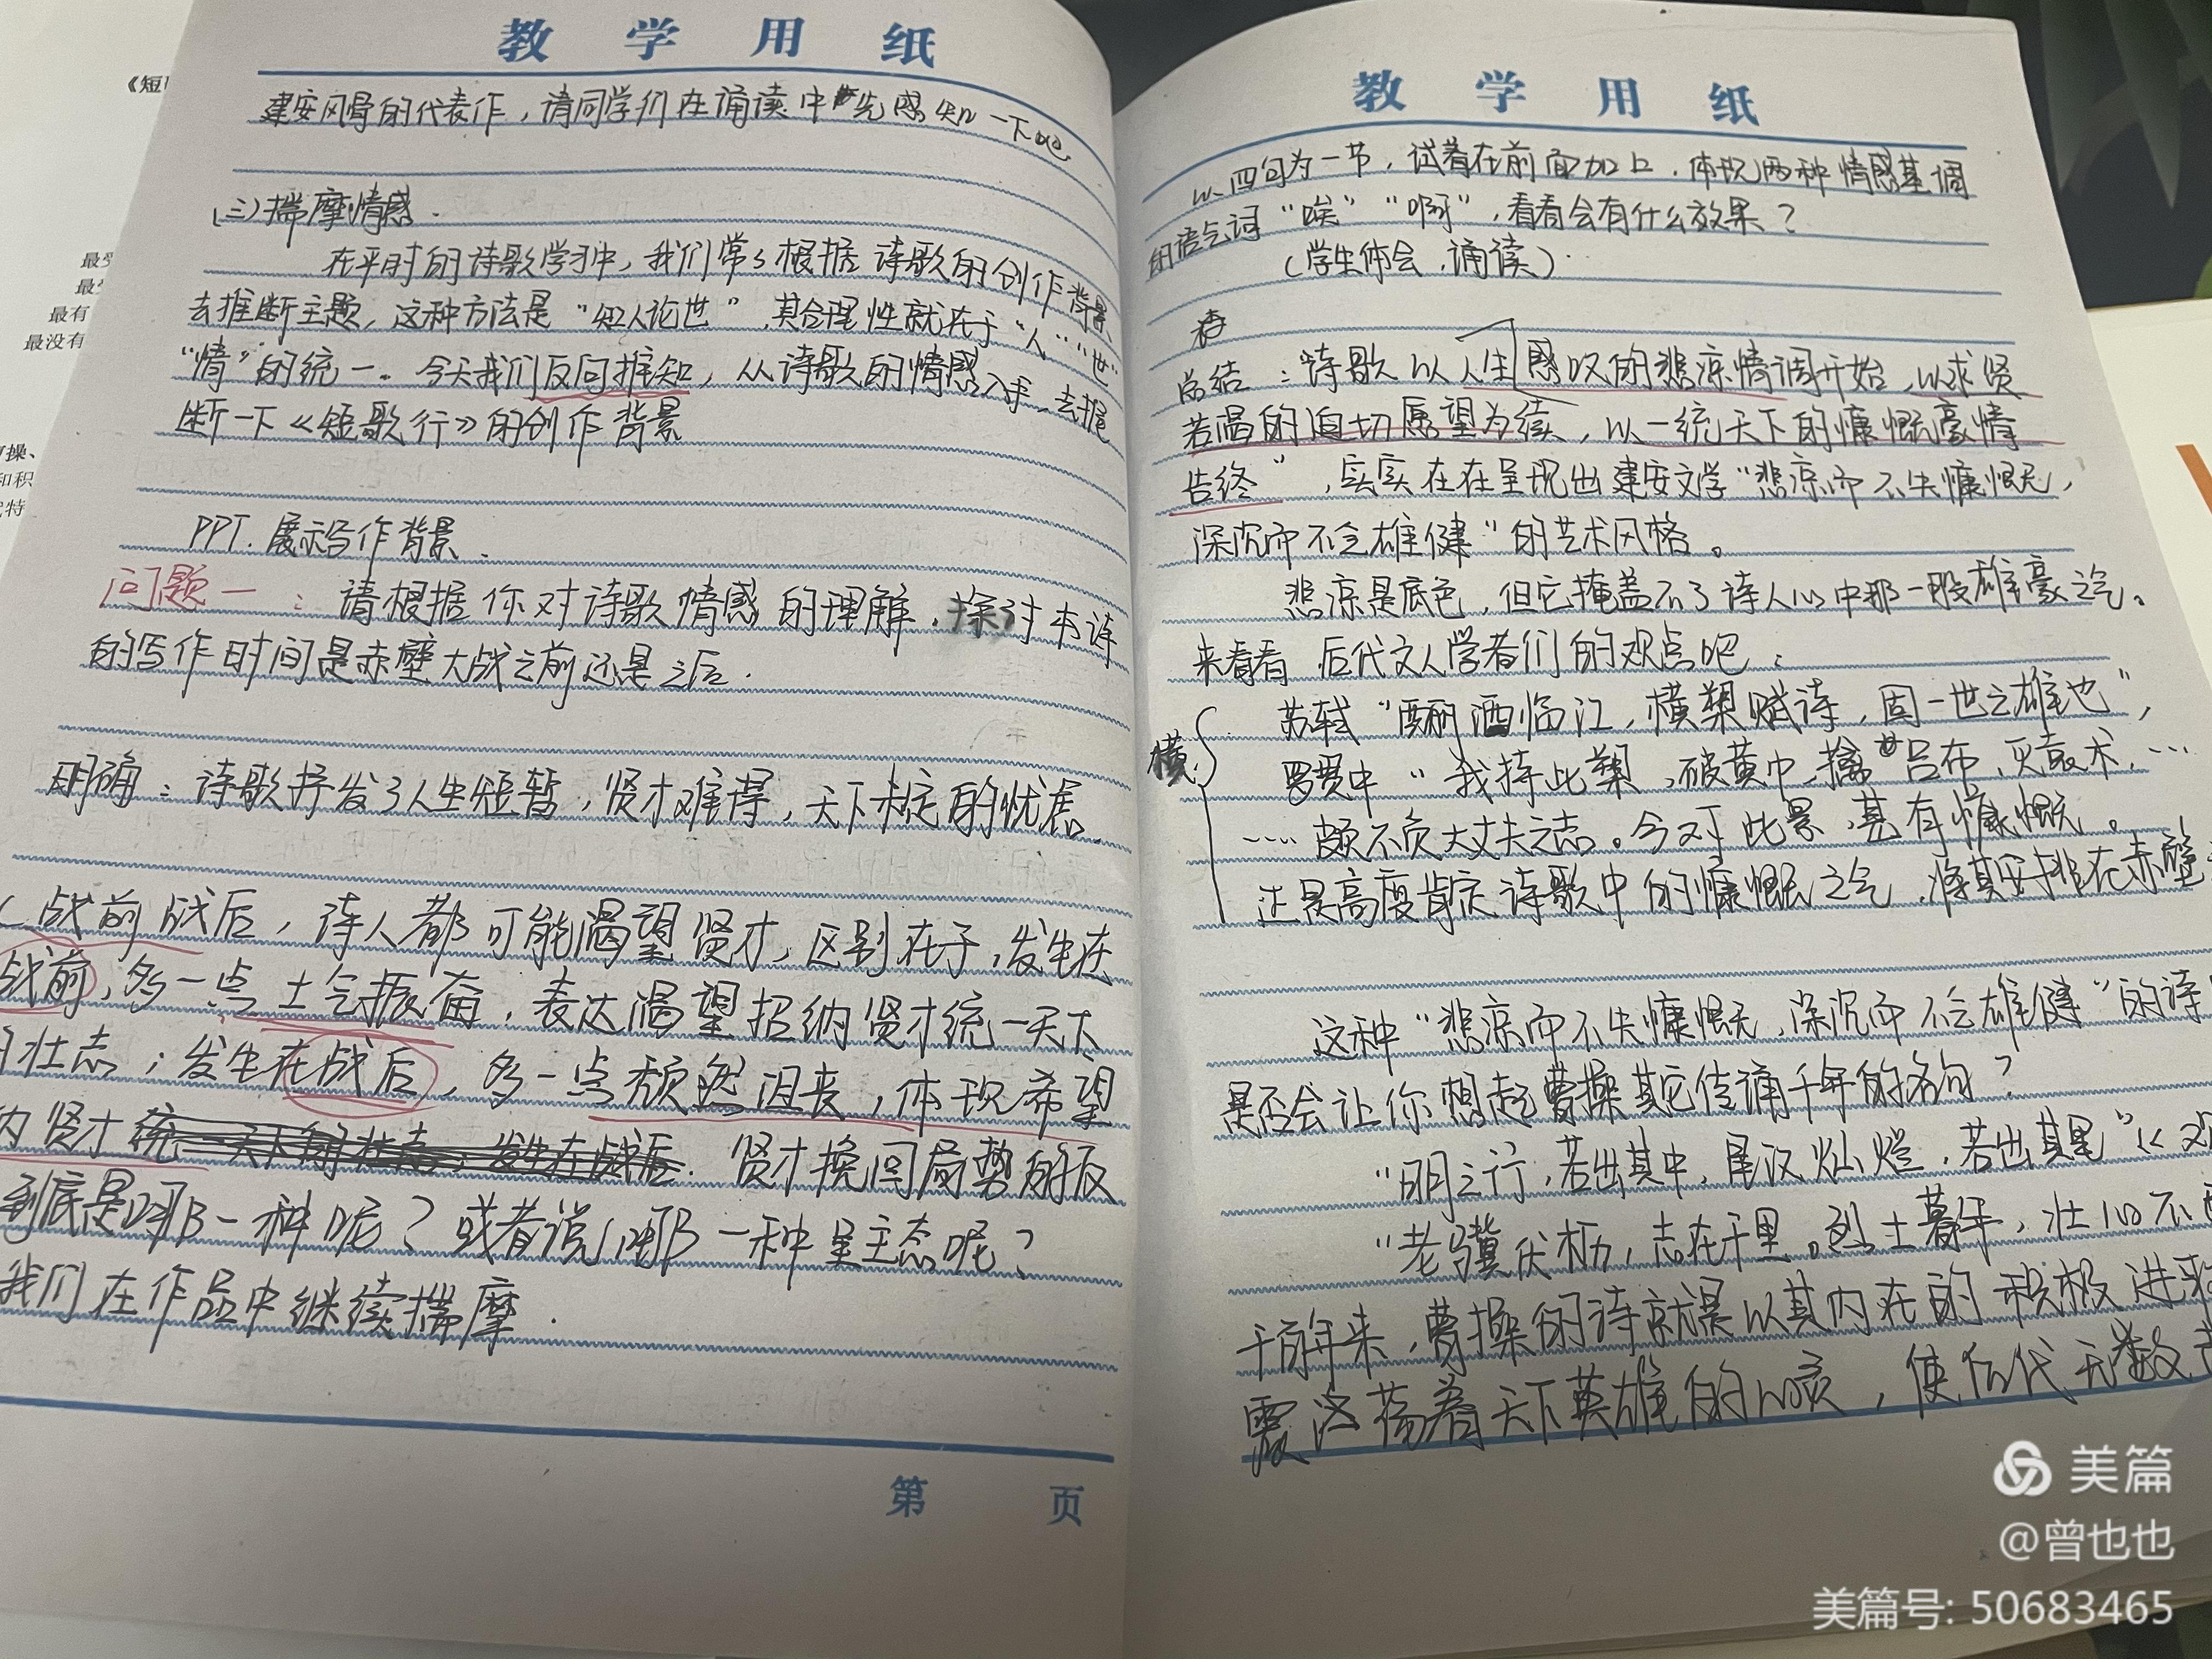 《短
最
最
最有
最没有
操、
和积
特
教 学 用 纸
建安风骨的代表作，请同学们在诵读中先感知一下吧
(三)揣摩情感.
在平时的诗歌学习中，我们常常根据诗歌的创作背景、
去推断主题，这种方法是“知人论世”，其合理性就在于“人”“世”
“情”的统一。今天我们反向推知，从诗歌的情感入手，去推
断一下《短歌行》的创作背景
PPT.展示写作背景.
问题一：请根据你对诗歌情感的理解，探讨本诗
的写作时间是赤壁大战之前还是之后.
明确：诗歌抒发了人生短暂，贤才难得，天下未定的忧虑
(战前战后，诗人都可能渴望贤才，区别在于，发生在
战前，多一点士气振奋，表达渴望招纳贤才统一天下
壮志；发生在战后，多一点颓然沮丧，体现希望
贤才 贤才挽回局势
到底是哪一种呢？或者说，哪一种呈主态呢？
我们在作品中继续揣摩.
第 页
教 学 用 纸
以四句为一节，试着在前面加上，体现两种情感基调
的语气词“唉”“啊”，看看会有什么效果？
(学生体会，诵读)
总结：“诗歌以人生感叹的悲凉情调开始，以求贤
若渴的迫切愿望为续，以一统天下的慷慨豪情
告终”，实实在在呈现出建安文学“悲凉而不失慷慨，
深沉而不乏雄健”的艺术风格。
悲凉是底色，但它掩盖不了诗人心中那一股雄豪之气。
来看看后代文人学者们的观点吧：
横
苏轼“酾酒临江，横槊赋诗，固一世之雄也”，
罗贯中“我持此槊，破黄巾，擒吕布，灭袁术，……
……颇不负大丈夫之志。今对此景，甚有慷慨。
还是高度肯定诗歌中的慷慨之气，将其安排在赤壁
这种“悲凉而不失慷慨，深沉而不乏雄健”的诗
是否会让你想起曹操其它传诵千年的名句？
“日月之行，若出其中，星汉灿烂，若出其里”《观
“老骥伏枥，志在千里。烈士暮年，壮心不
千百年来，曹操的诗就是以其内在的积极进取
震荡着天下英雄的心灵，使后代无数
美篇
@曾也也
美篇号: 50683465